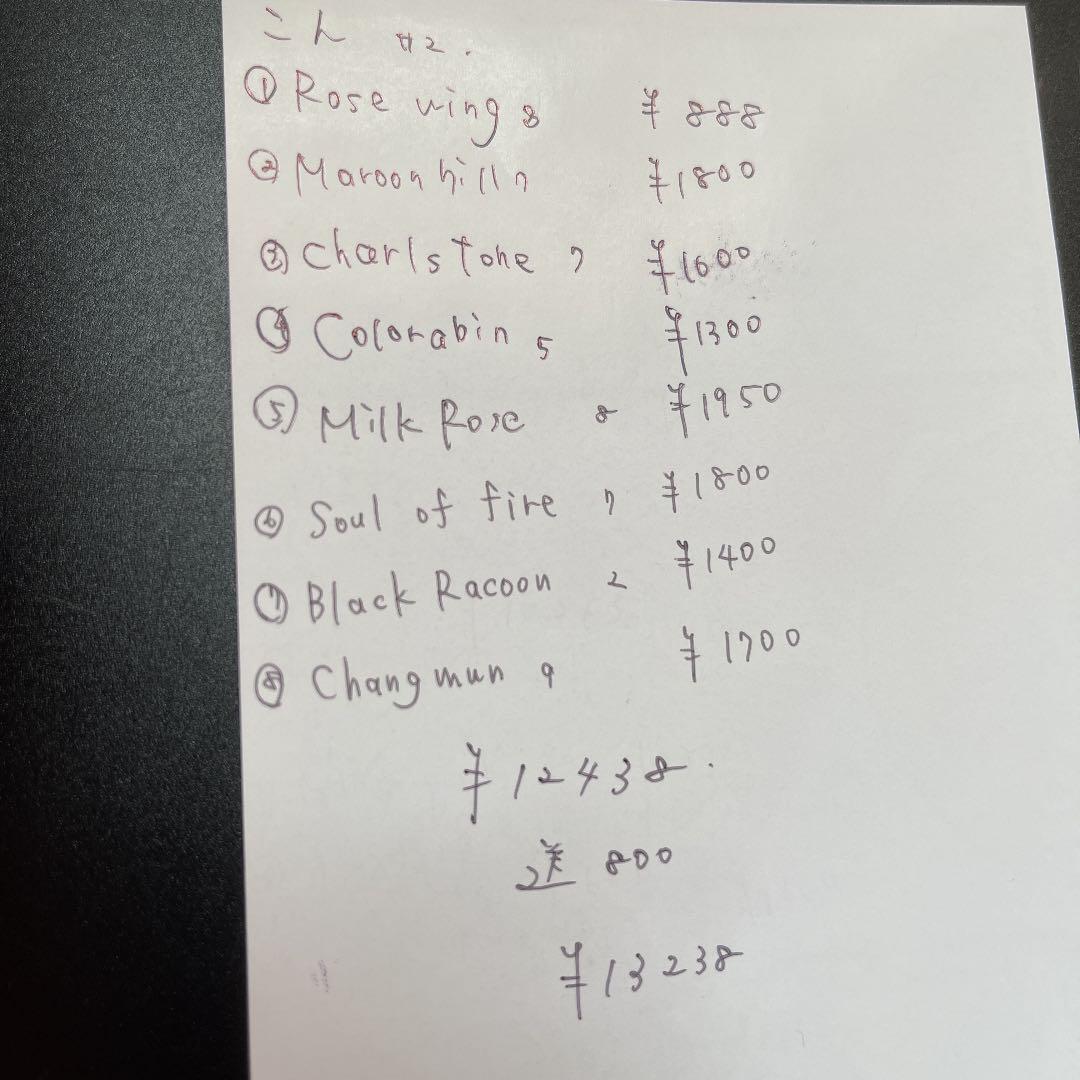 こん #2.
① Rose wing 8 ¥888
② Maroon hill 7 ¥1800
③ Charlstone 7 ¥1600
④ Colorabin 5 ¥1300
⑤ Milk Rose 8 ¥1950
⑥ Soul of fire 7 ¥1800
⑦ Black Racoon 2 ¥1400
⑧ Changmun 9 ¥1700
¥12438.
送 800
¥13238